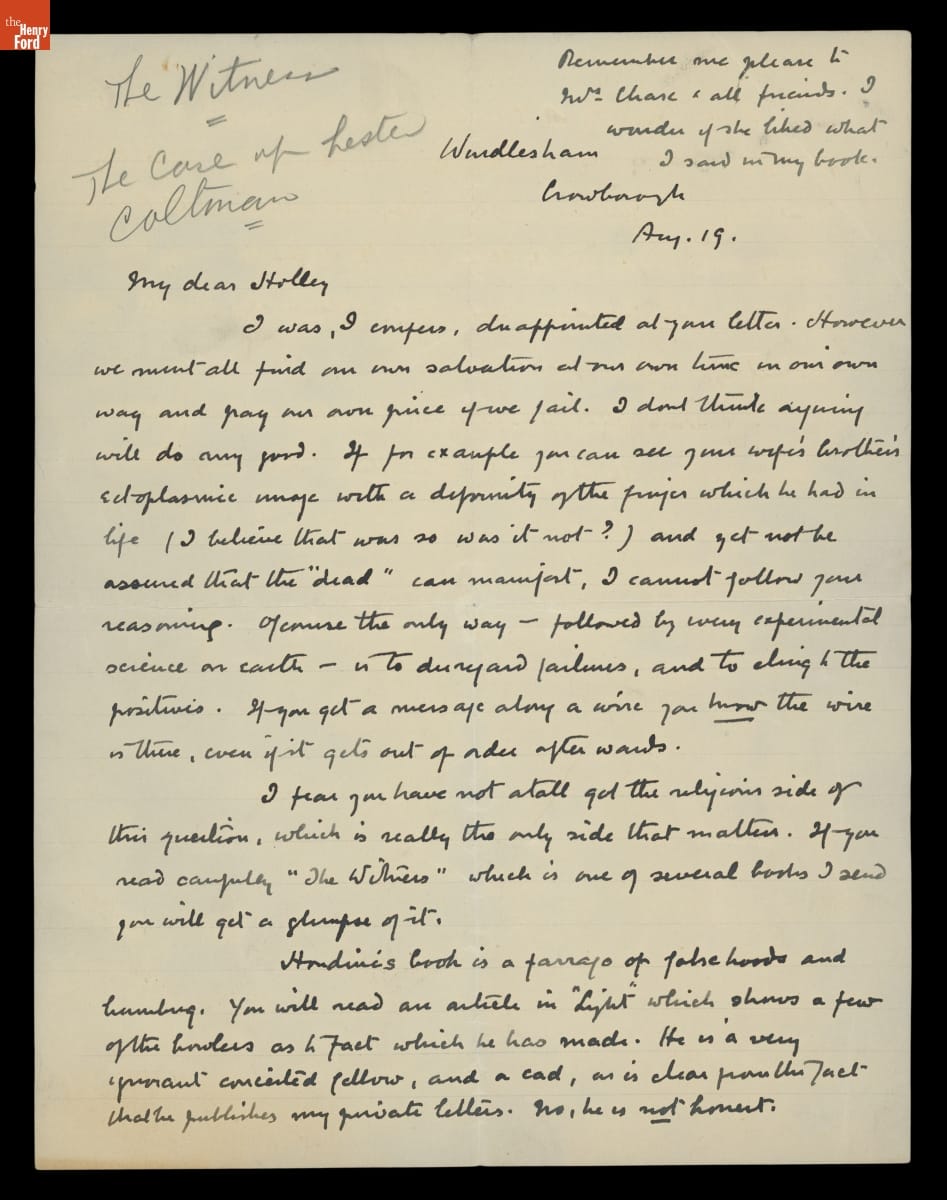 the
Henry
Ford
The Witness
The Case of Lester
Coltman
Remember me please to
Mrs Chase & all friends. I
wonder if she liked what
I said in my book.
Windlesham
Crowborough
Aug. 19.
My dear Holley
I was, I confess, disappointed at your letter. However
we must all find our own salvation at our own time in our own
way and pay our own price if we fail. I dont think arguing
will do any good. If for example you can see your wife's brother's
ectoplasmic image with a deformity of the finger which he had in
life (I believe that was so was it not?) and yet not be
assured that the "dead" can manifest, I cannot follow your
reasoning. Of course the only way – followed by every experimental
science on earth – is to disregard failures, and to cling to the
positives. If you get a message along a wire you know the wire
is there, even if it gets out of order after wards.
I fear you have not at all got the religious side of
this question, which is really the only side that matters. If you
read carefully "The Witness" which is one of several books I send
you will get a glimpse of it.
Houdini's book is a farrago of falsehoods and
humbug. You will read an article in "Light" which shows a few
of the howlers as to Fact which he has made. He is a very
ignorant conceited fellow, and a cad, as is clear from the fact
that he publishes my private letters. No, he is not honest.